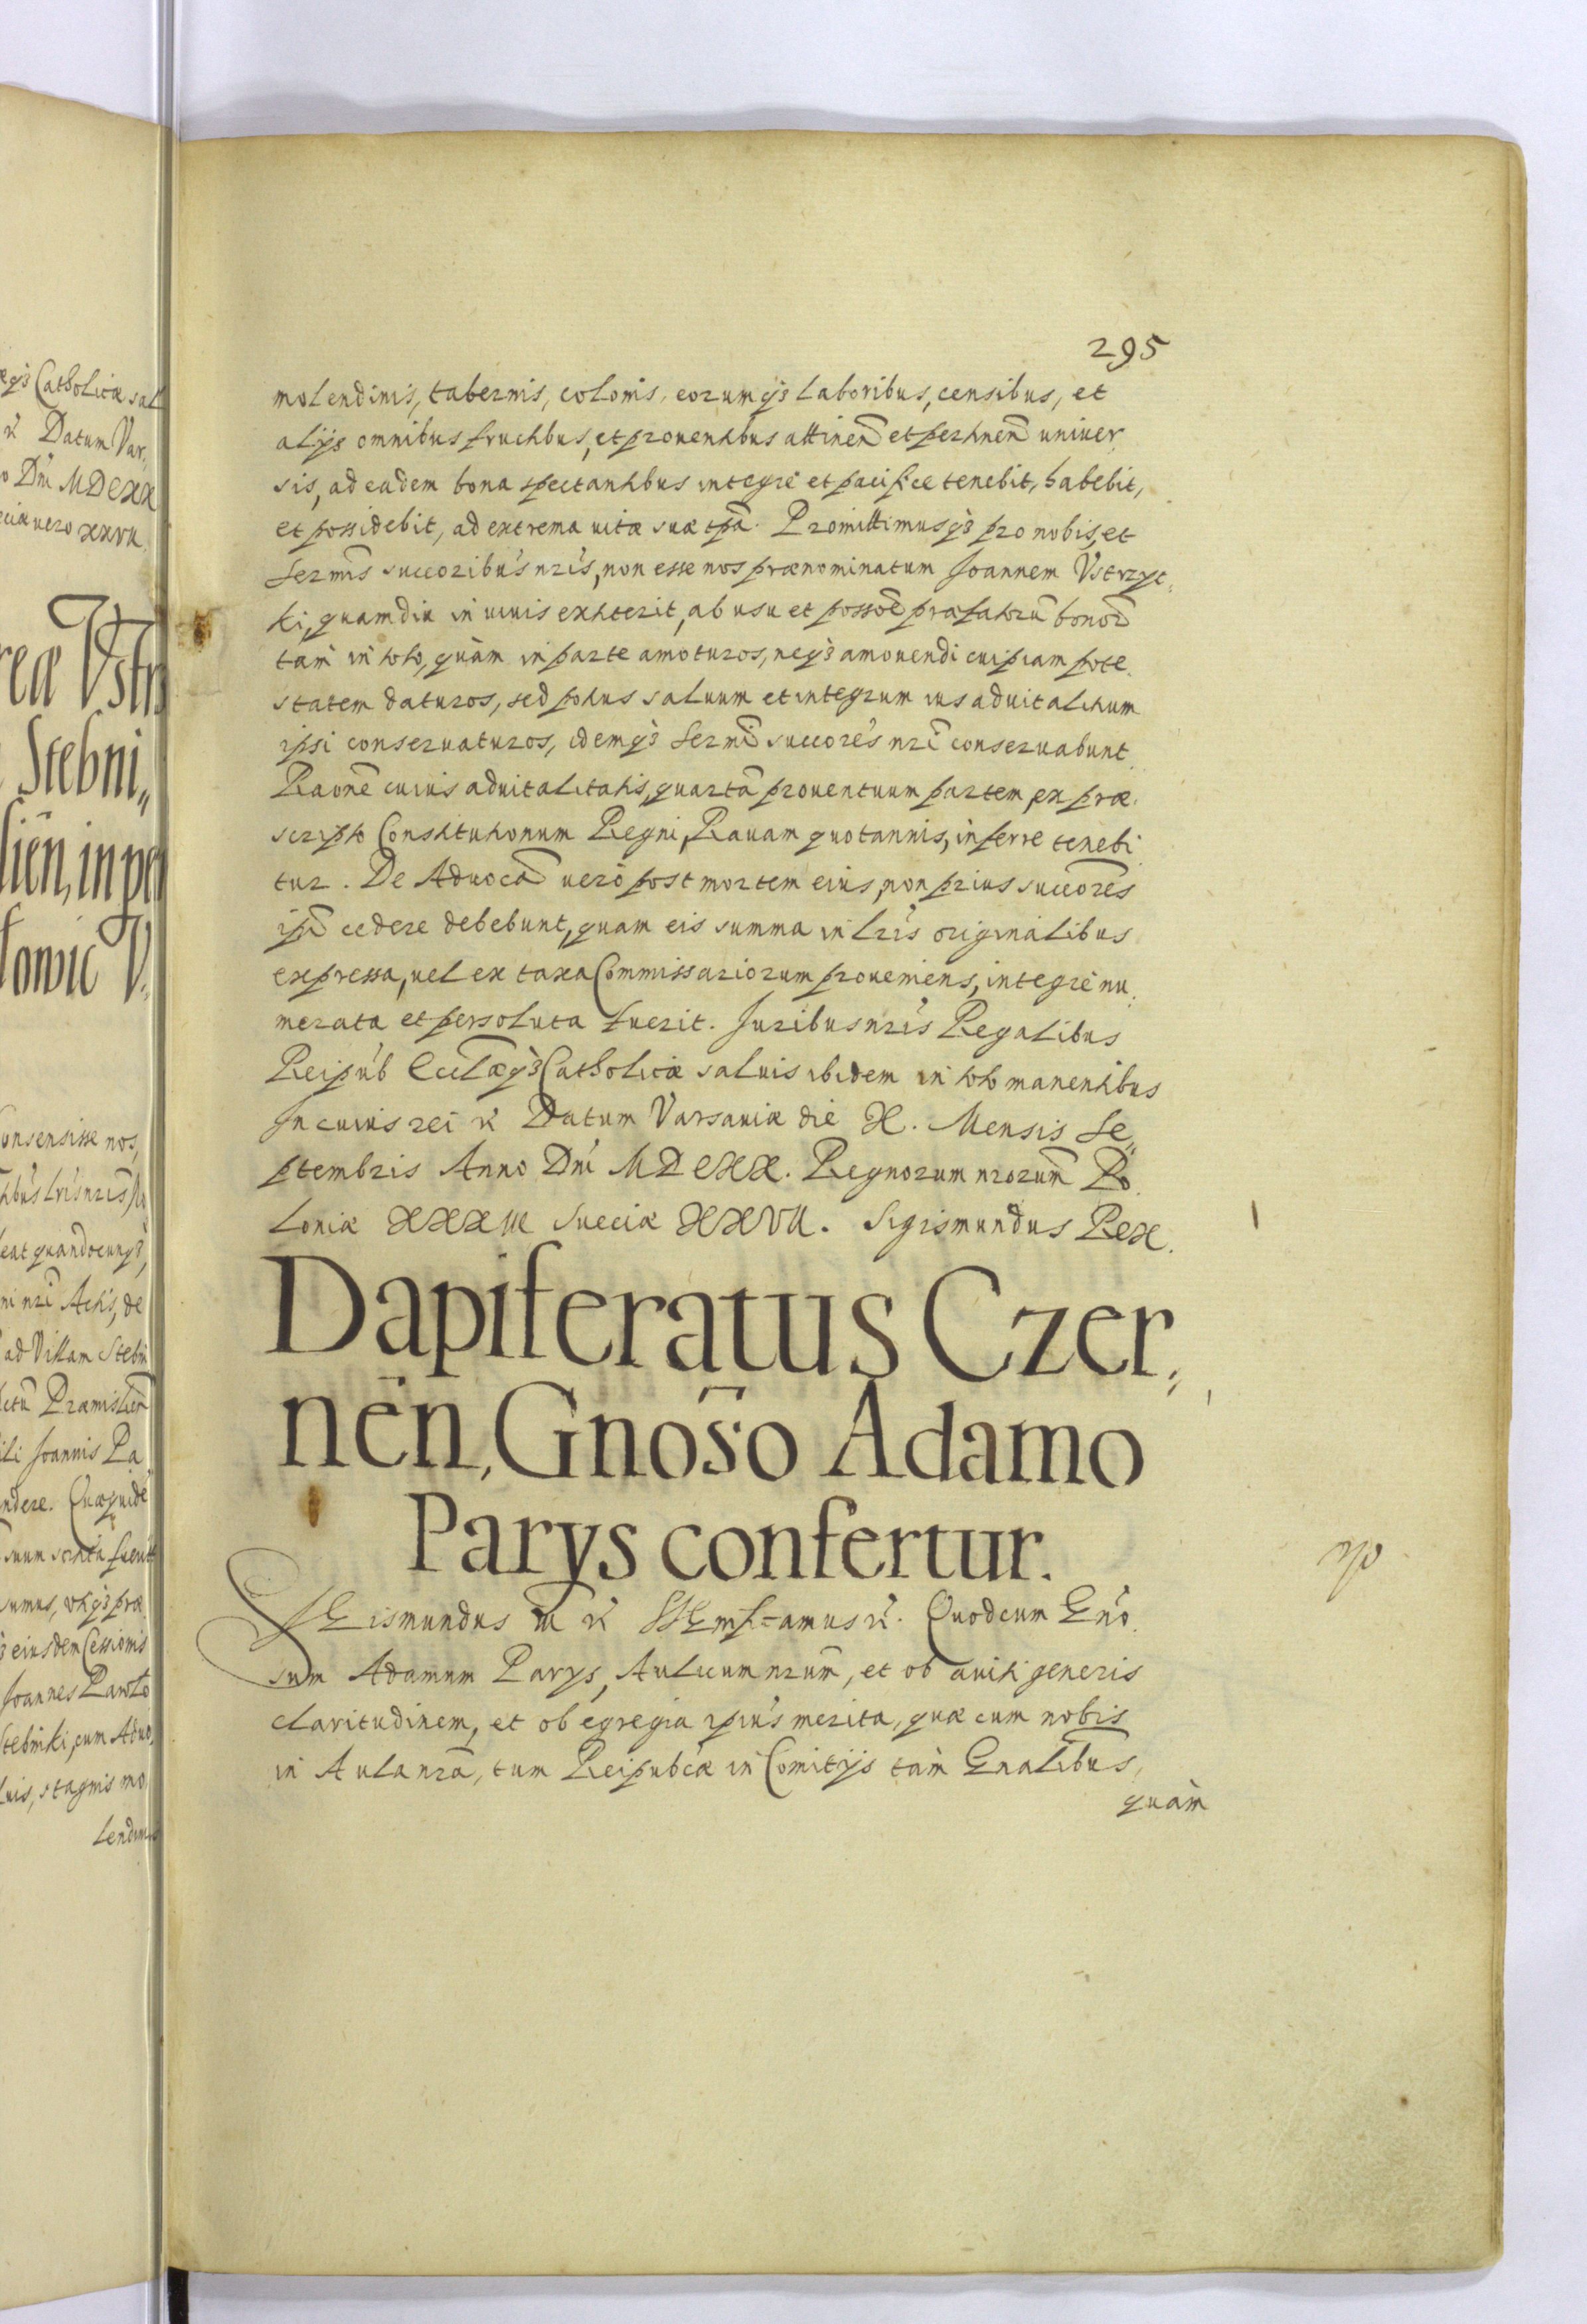 295
molendinis, tabernis, colonis, eorumq́ꝫ laboribus, censibus, et
alijs omnibus fructibus, et prouentibus attinen̄ et pertinen̄ uniuer,
sis, ad eadem bona spectantibus integrè et pacificè tenebit, habebit,
et possidebit, ad extrema uitæ suæ tpa͂. Promittimusq́ꝫ pro nobis, et
Sermīs succoribu's nrīs, non esse nos prænominatum Joannem Vstrzyc,
ki, quamdiu in uiuis extiterit, ab usu et possōe præfatorū bonor̄
tam in toto, quàm in parte amoturos, neq́ꝫ amouendi cuipiam pote,
statem daturos, sed potius saluum et integrum ius aduitalitium
ipsi conseruaturos, idemq́ꝫ Sermī succore's nrī conseruabunt.
Raōne cuius aduitalitatis, quartā prouentuum partem, ex præ,
scripto Constitutionum Regni, Rauam quotannis, inferre tenebi
tur. De Aduocā uerò post mortem eius, non prius succōres
ipī cedere debebunt, quam eis summa in lrīs originalibus
expressa, uel ex taxa Commissariorum proueniens, integrè nu,
merata et persoluta fuerit. Juribus nrīs Regalibus
Reipub́ Eccla͂eq́ꝫ Catholicæ saluis ibidem in toto manentibus
In cuius rei ꝛc Datum Varsauiæ die X. Mensis Se,,
ptembris Anno Dnī MDCXX. Regnorum nrorum̄ Po,
loniæ XXXIII Sueciæ XXVII. Sigismundus Rex.
Dapiferatus Czer,,
nēn, Gnos̄o Adamo
Parys confertur.
SIGismundus III ꝛc SSGmf-amus ꝛc. Quod cum Gn̄o,
sum Adamum Parys, Aulicum nrum̄, et ob auiti generis
claritudinem, et ob egregia ipiu's merita, quæ cum nobis
in Aula nrā, tum Reipubcæ in Comitijs tàm Gnalibus,
quàm